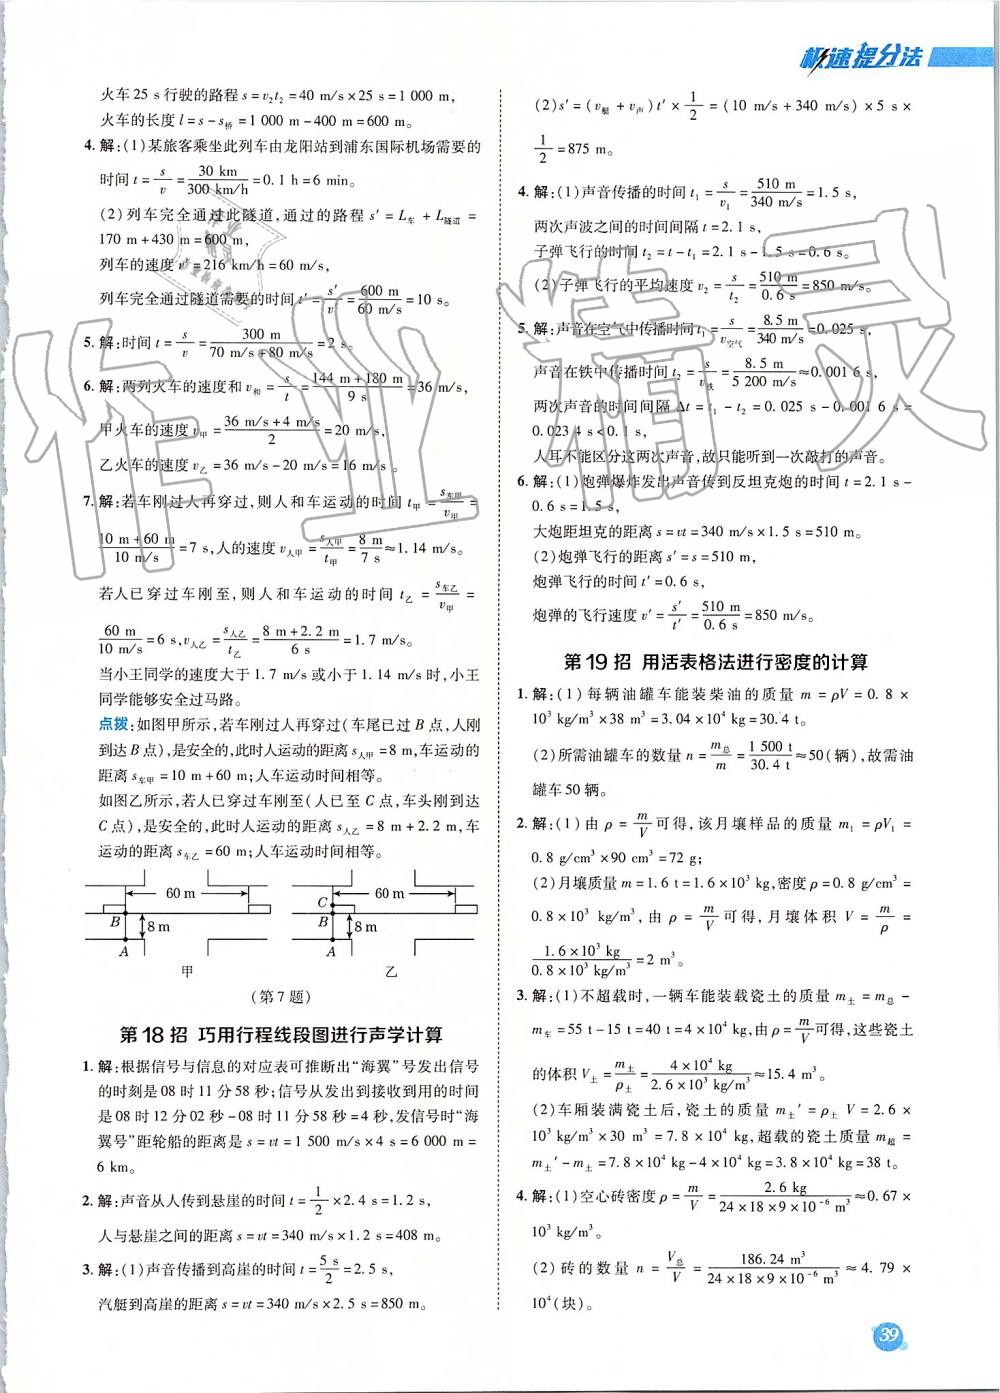 极速提分法
火车25 s行驶的路程 s=v₂t₂=40 m/s×25 s=1 000 m,
火车的长度 l=s-s桥=1 000 m-400 m=600 m。
4. 解:(1)某旅客乘坐此列车由龙阳站到浦东国际机场需要的
时间 t=s/v=30 km/300 km/h=0.1 h=6 min。
(2)列车完全通过此隧道,通过的路程 s′=L车+L隧道=
170 m+430 m=600 m,
列车的速度 v′=216 km/h=60 m/s,
列车完全通过隧道需要的时间 t′=s′/v′=600 m/60 m/s=10 s。
5. 解:时间 t=s/v=300 m/(70 m/s+80 m/s)=2 s。
6. 解:两列火车的速度和 v和=s/t=(144 m+180 m)/9 s=36 m/s,
甲火车的速度 v甲=(36 m/s+4 m/s)/2=20 m/s,
乙火车的速度 v乙=36 m/s-20 m/s=16 m/s。
7. 解:若车刚过人再穿过,则人和车运动的时间 t甲=s车甲/v甲=
(10 m+60 m)/10 m/s=7 s,人的速度 v人甲=s人甲/t甲=8 m/7 s≈1.14 m/s。
若人已穿过车刚至,则人和车运动的时间 t乙=s车乙/v甲=
60 m/10 m/s=6 s,v人乙=s人乙/t乙=(8 m+2.2 m)/6 s=1.7 m/s。
当小王同学的速度大于1.7 m/s或小于1.14 m/s时,小王
同学能够安全过马路。
点拨:如图甲所示,若车刚过人再穿过(车尾已过B点,人刚
到达B点),是安全的,此时人运动的距离 s人甲=8 m,车运动的
距离 s车甲=10 m+60 m;人车运动时间相等。
如图乙所示,若人已穿过车刚至(人已至C点,车头刚到达
C点),是安全的,此时人运动的距离 s人乙=8 m+2.2 m,车
运动的距离 s车乙=60 m;人车运动时间相等。
60 m
B
8 m
A
甲
60 m
C
B
8 m
A
乙
(第7题)
第18招 巧用行程线段图进行声学计算
1. 解:根据信号与信息的对应表可推断出“海翼”号发出信号
的时刻是08时11分58秒;信号从发出到接收到用的时间
是08时12分02秒-08时11分58秒=4秒,发信号时“海
翼号”距轮船的距离是 s=vt=1 500 m/s×4 s=6 000 m=
6 km。
2. 解:声音从人传到悬崖的时间 t=1/2×2.4 s=1.2 s,
人与悬崖之间的距离 s=vt=340 m/s×1.2 s=408 m。
3. 解:(1)声音传播到高崖的时间 t=5 s/2=2.5 s,
汽艇到高崖的距离 s=vt=340 m/s×2.5 s=850 m。
(2)s′=(v艇+v声)t′×1/2=(10 m/s+340 m/s)×5 s×
1/2=875 m。
4. 解:(1)声音传播的时间 t₁=s/v₁=510 m/340 m/s=1.5 s,
两次声波之间的时间间隔 t=2.1 s,
子弹飞行的时间 t₂=t-t₁=2.1 s-1.5 s=0.6 s。
(2)子弹飞行的平均速度 v₂=s/t₂=510 m/0.6 s=850 m/s。
5. 解:声音在空气中传播时间 t₁=s/v空气=8.5 m/340 m/s=0.025 s,
声音在铁中传播时间 t₂=s/v铁=8.5 m/5 200 m/s≈0.001 6 s,
两次声音的时间间隔 Δt=t₁-t₂=0.025 s-0.001 6 s=
0.023 4 s<0.1 s,
人耳不能区分这两次声音,故只能听到一次敲打的声音。
6. 解:(1)炮弹爆炸发出声音传到反坦克炮的时间 t=2.1 s-
0.6 s=1.5 s,
大炮距坦克的距离 s=vt=340 m/s×1.5 s=510 m。
(2)炮弹飞行的距离 s′=s=510 m,
炮弹飞行的时间 t′=0.6 s,
炮弹的飞行速度 v′=s′/t′=510 m/0.6 s=850 m/s。
第19招 用活表格法进行密度的计算
1. 解:(1)每辆油罐车能装柴油的质量 m=ρV=0.8×
10³ kg/m³×38 m³=3.04×10⁴ kg=30.4 t。
(2)所需油罐车的数量 n=m总/m=1 500 t/30.4 t≈50(辆),故需油
罐车50辆。
2. 解:(1)由 ρ=m/V可得,该月壤样品的质量 m₁=ρV₁=
0.8 g/cm³×90 cm³=72 g;
(2)月壤质量 m=1.6 t=1.6×10³ kg,密度 ρ=0.8 g/cm³=
0.8×10³ kg/m³,由 ρ=m/V可得,月壤体积 V=m/ρ=
1.6×10³ kg/0.8×10³ kg/m³=2 m³。
3. 解:(1)不超载时,一辆车能装载瓷土的质量 m土=m总-
m车=55 t-15 t=40 t=4×10⁴ kg,由 ρ=m/V可得,这些瓷土
的体积 V土=m土/ρ土=4×10⁴ kg/2.6×10³ kg/m³≈15.4 m³。
(2)车厢装满瓷土后,瓷土的质量 m土′=ρ土V=2.6×
10³ kg/m³×30 m³=7.8×10⁴ kg,超载的瓷土质量 m超=
m土′-m土=7.8×10⁴ kg-4×10⁴ kg=3.8×10⁴ kg=38 t。
4. 解:(1)空心砖密度 ρ=m/V=2.6 kg/24×18×9×10⁻⁶ m³≈0.67×
10³ kg/m³。
(2)砖的数量 n=V总/V=186.24 m³/24×18×9×10⁻⁶ m³≈4.79×
10⁴(块)。
39
作业精灵